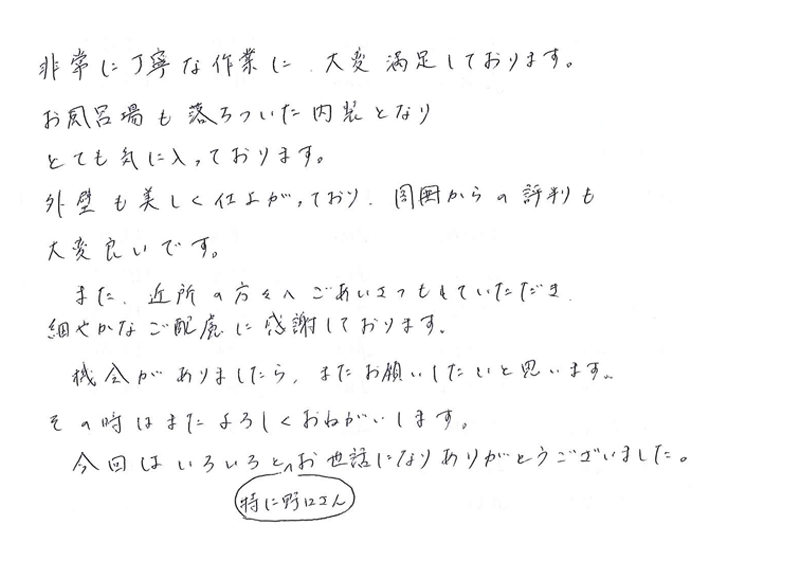 非常に丁寧な作業に、大変満足しております。
お風呂場も落ろついた内装となり
とても気に入っております。
外壁も美しく仕上がっており、周囲からの評判も
大変良いです。
また、近所の方々へごあいさつもしていただき、
細やかなご配慮に感謝しております。
機会がありましたら、またお願いしたいと思います。
その時はまたよろしくおねがいします。
今回はいろいろとお世話になりありがとうございました。
特に野口さん